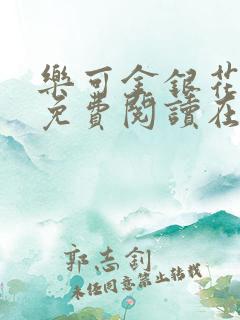 樂可金銀花
免費閱讀在
郭志釗
未任同意禁止转载